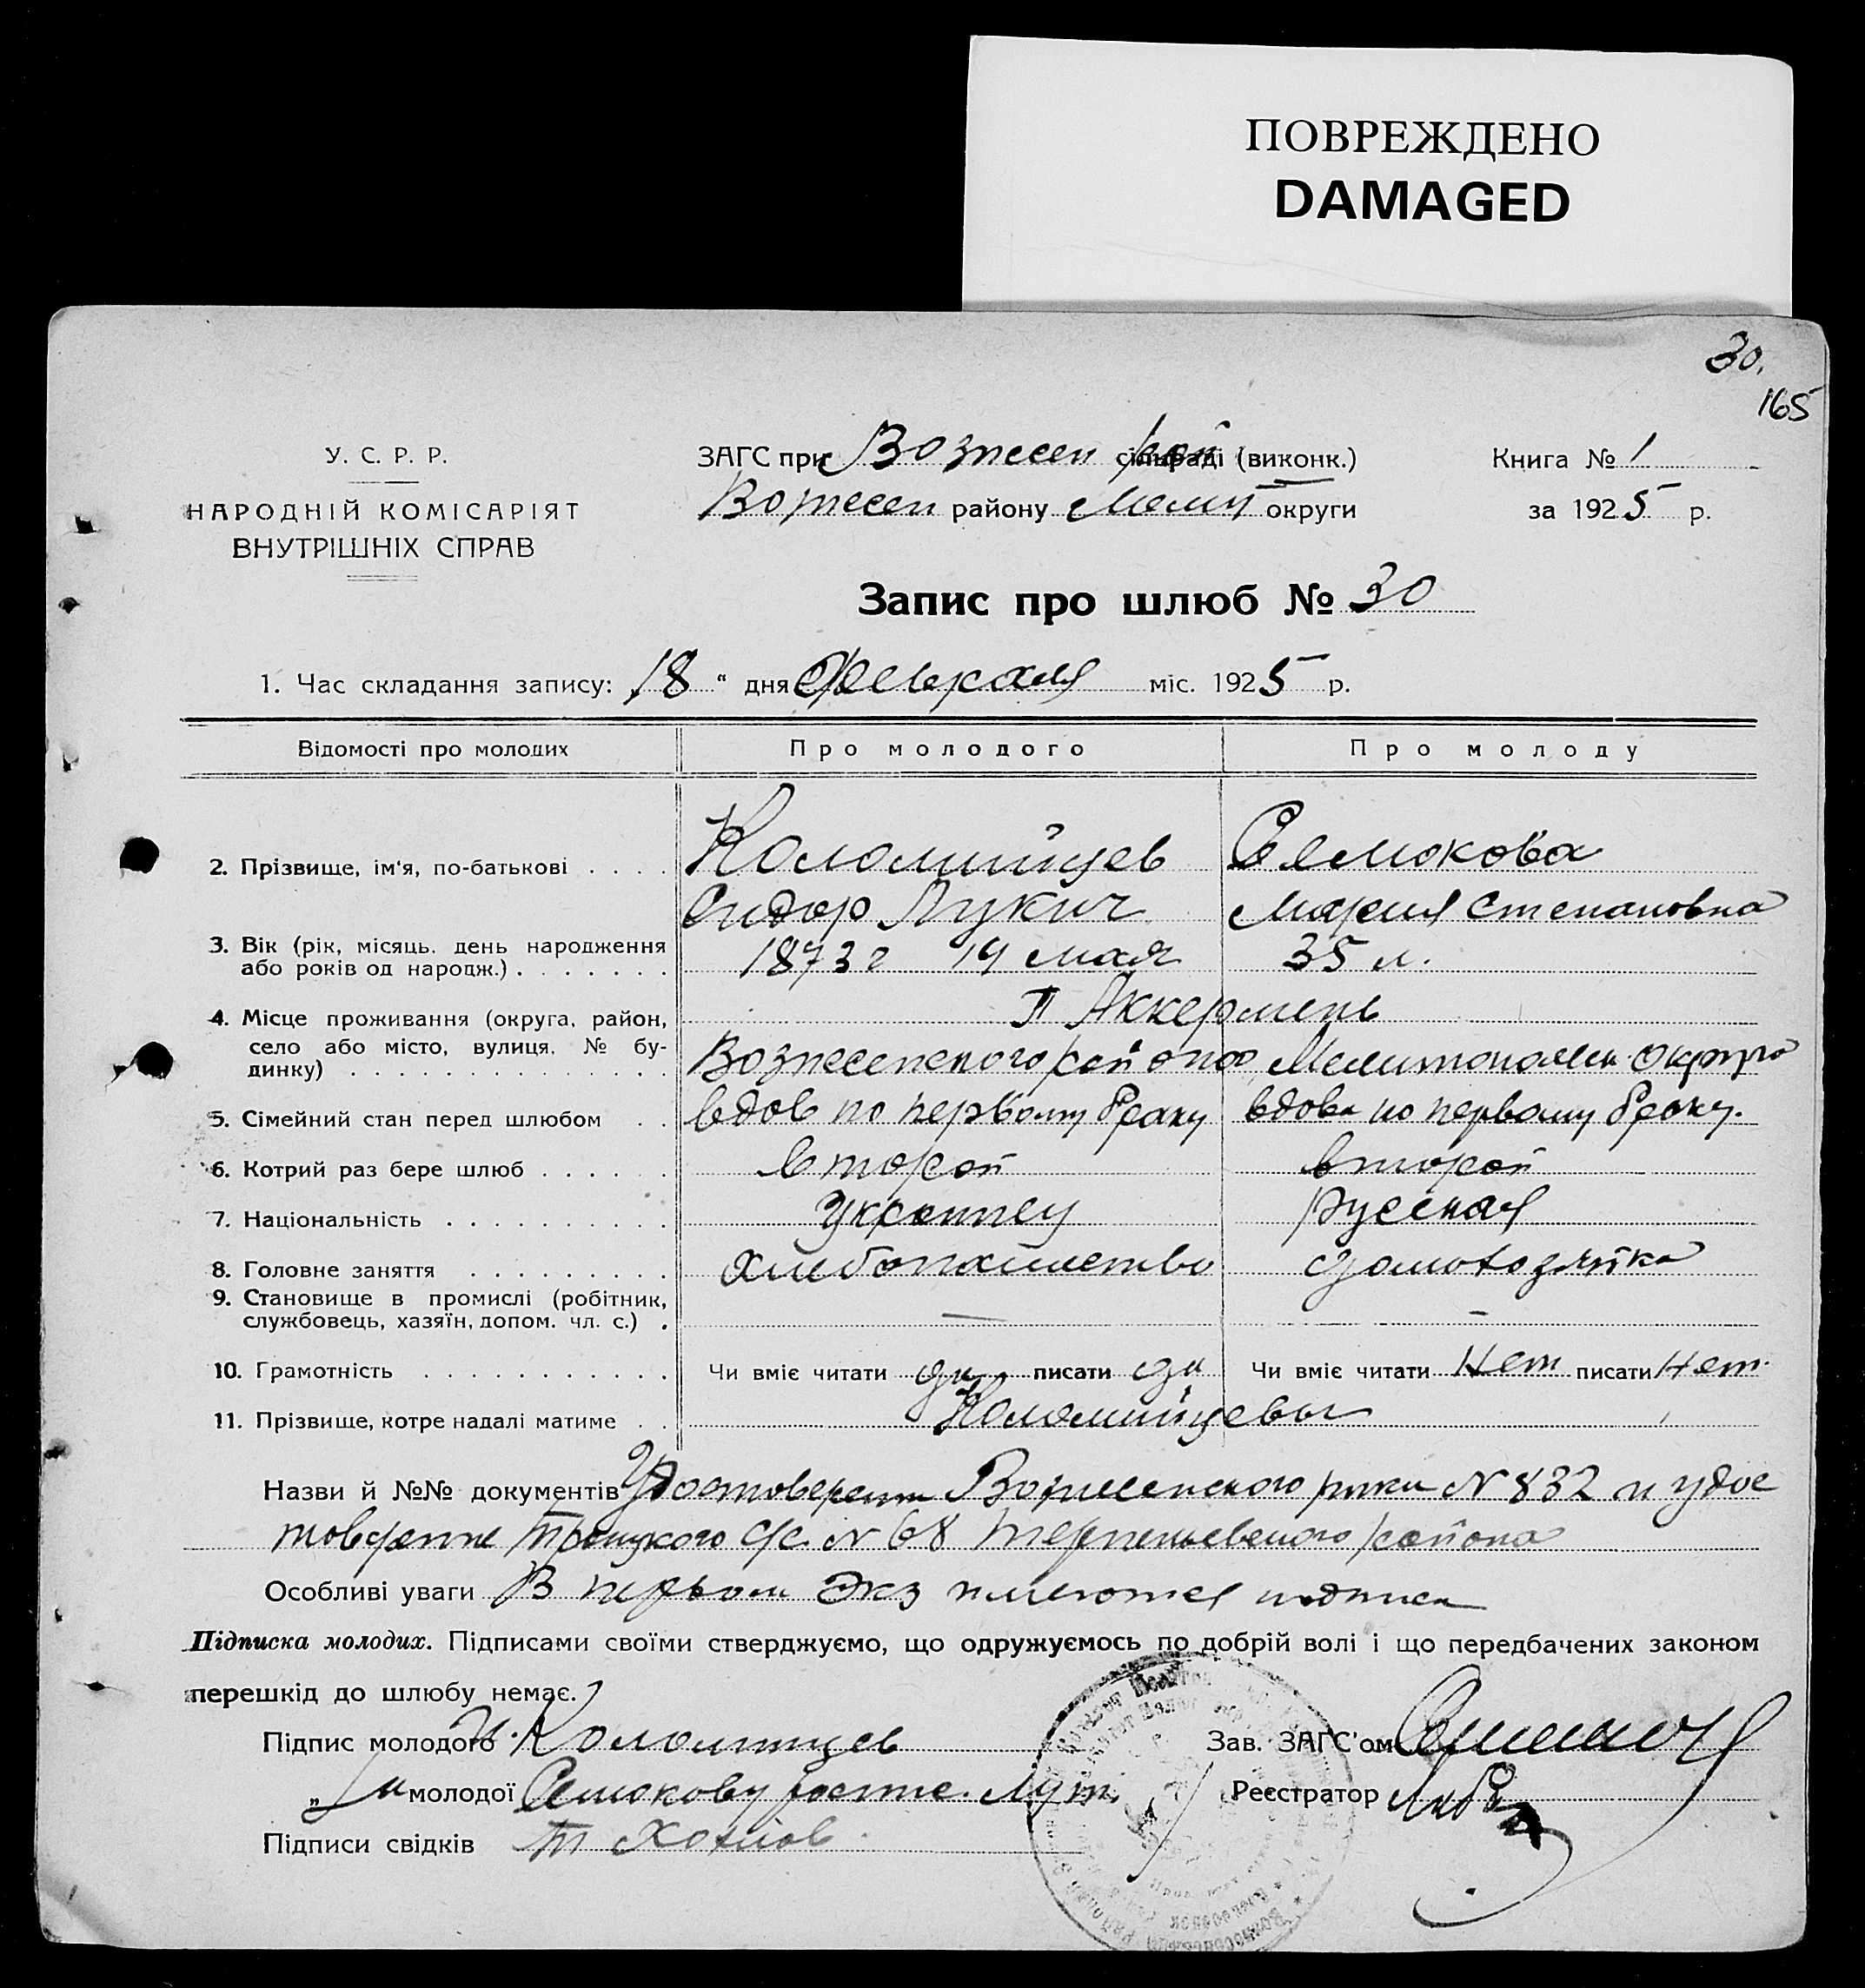 ПОВРЕЖДЕНО
DAMAGED
30.
165
У. С. Р. Р.
НАРОДНІЙ КОМІСАРІЯТ
ВНУТРІШНІХ СПРАВ
ЗАГС при Вознесен рай сільраді (виконк.)
Вознесен району Мелит округи
Книга № 1
за 1925 р.
Запис про шлюб № 30
1. Час складання запису: „18“ дня февраля міс. 1925 р.
Відомості про молодих Про молодого Про молоду
2. Прізвище, ім'я, по-батькові . . . . Коломийцев Семокова
Сидор Лукич Мария Степановна
3. Вік (рік, місяць. день народження
або років од народж.) . . . . . . . 1873 г 14 мая 35 л.
4. Місце проживання (округа, район,
село або місто, вулиця, № бу-
динку) . . . . . . . . . . . . . .
П Аккермень
Вознесенского района Мелитополск округа
5. Сімейний стан перед шлюбом . . вдов по первому браку вдова по первому браку.
6. Котрий раз бере шлюб . . . . . . второй второй
7. Національність . . . . . . . . . . украинец русская
8. Головне заняття . . . . . . . . . хлебопашество домохозяйка
9. Становище в промислі (робітник,
службовець, хазяїн, допом. чл. с.) . — —
10. Грамотність . . . . . . . . . . . Чи вміє читати да писати да Чи вміє читати Нет писати Нет.
11. Прізвище, котре надалі матиме . . Коломийцевы
Назви й №№ документів Удостоверении Вознесенского рика N 832 и удос
товерение Троицкого с/с. N 68 Терпеньевского района
Особливі уваги В первом Экз имеются подписи
Підписка молодих. Підписами своїми стверджуємо, що одружуємось по добрій волі і що передбачених законом
перешкід до шлюбу немає.
Підпис молодого Коломийцев
Зав. ЗАГС'ом
„ молодої Семокову
Реєстратор
Підписи свідків